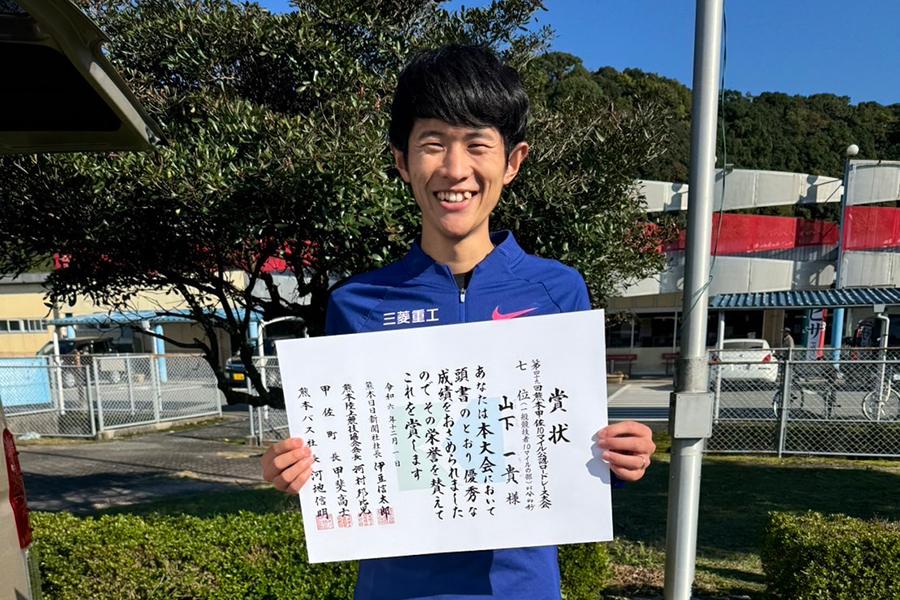 三菱重工
賞状
熊本甲佐10マイル公認ロードレース大会
七位(一般競技者10マイルの部)
山下 一貴 様
あなたは本大会において
頭書のとおり優秀な
成績をおさめられました
のでその栄誉を讃えて
これを賞します
令和六年十二月一日
熊本日日新聞社社長 伊豆信太郎
熊本陸上競技協会会長
甲佐町長 甲斐高士
熊本バス社長 河地信明